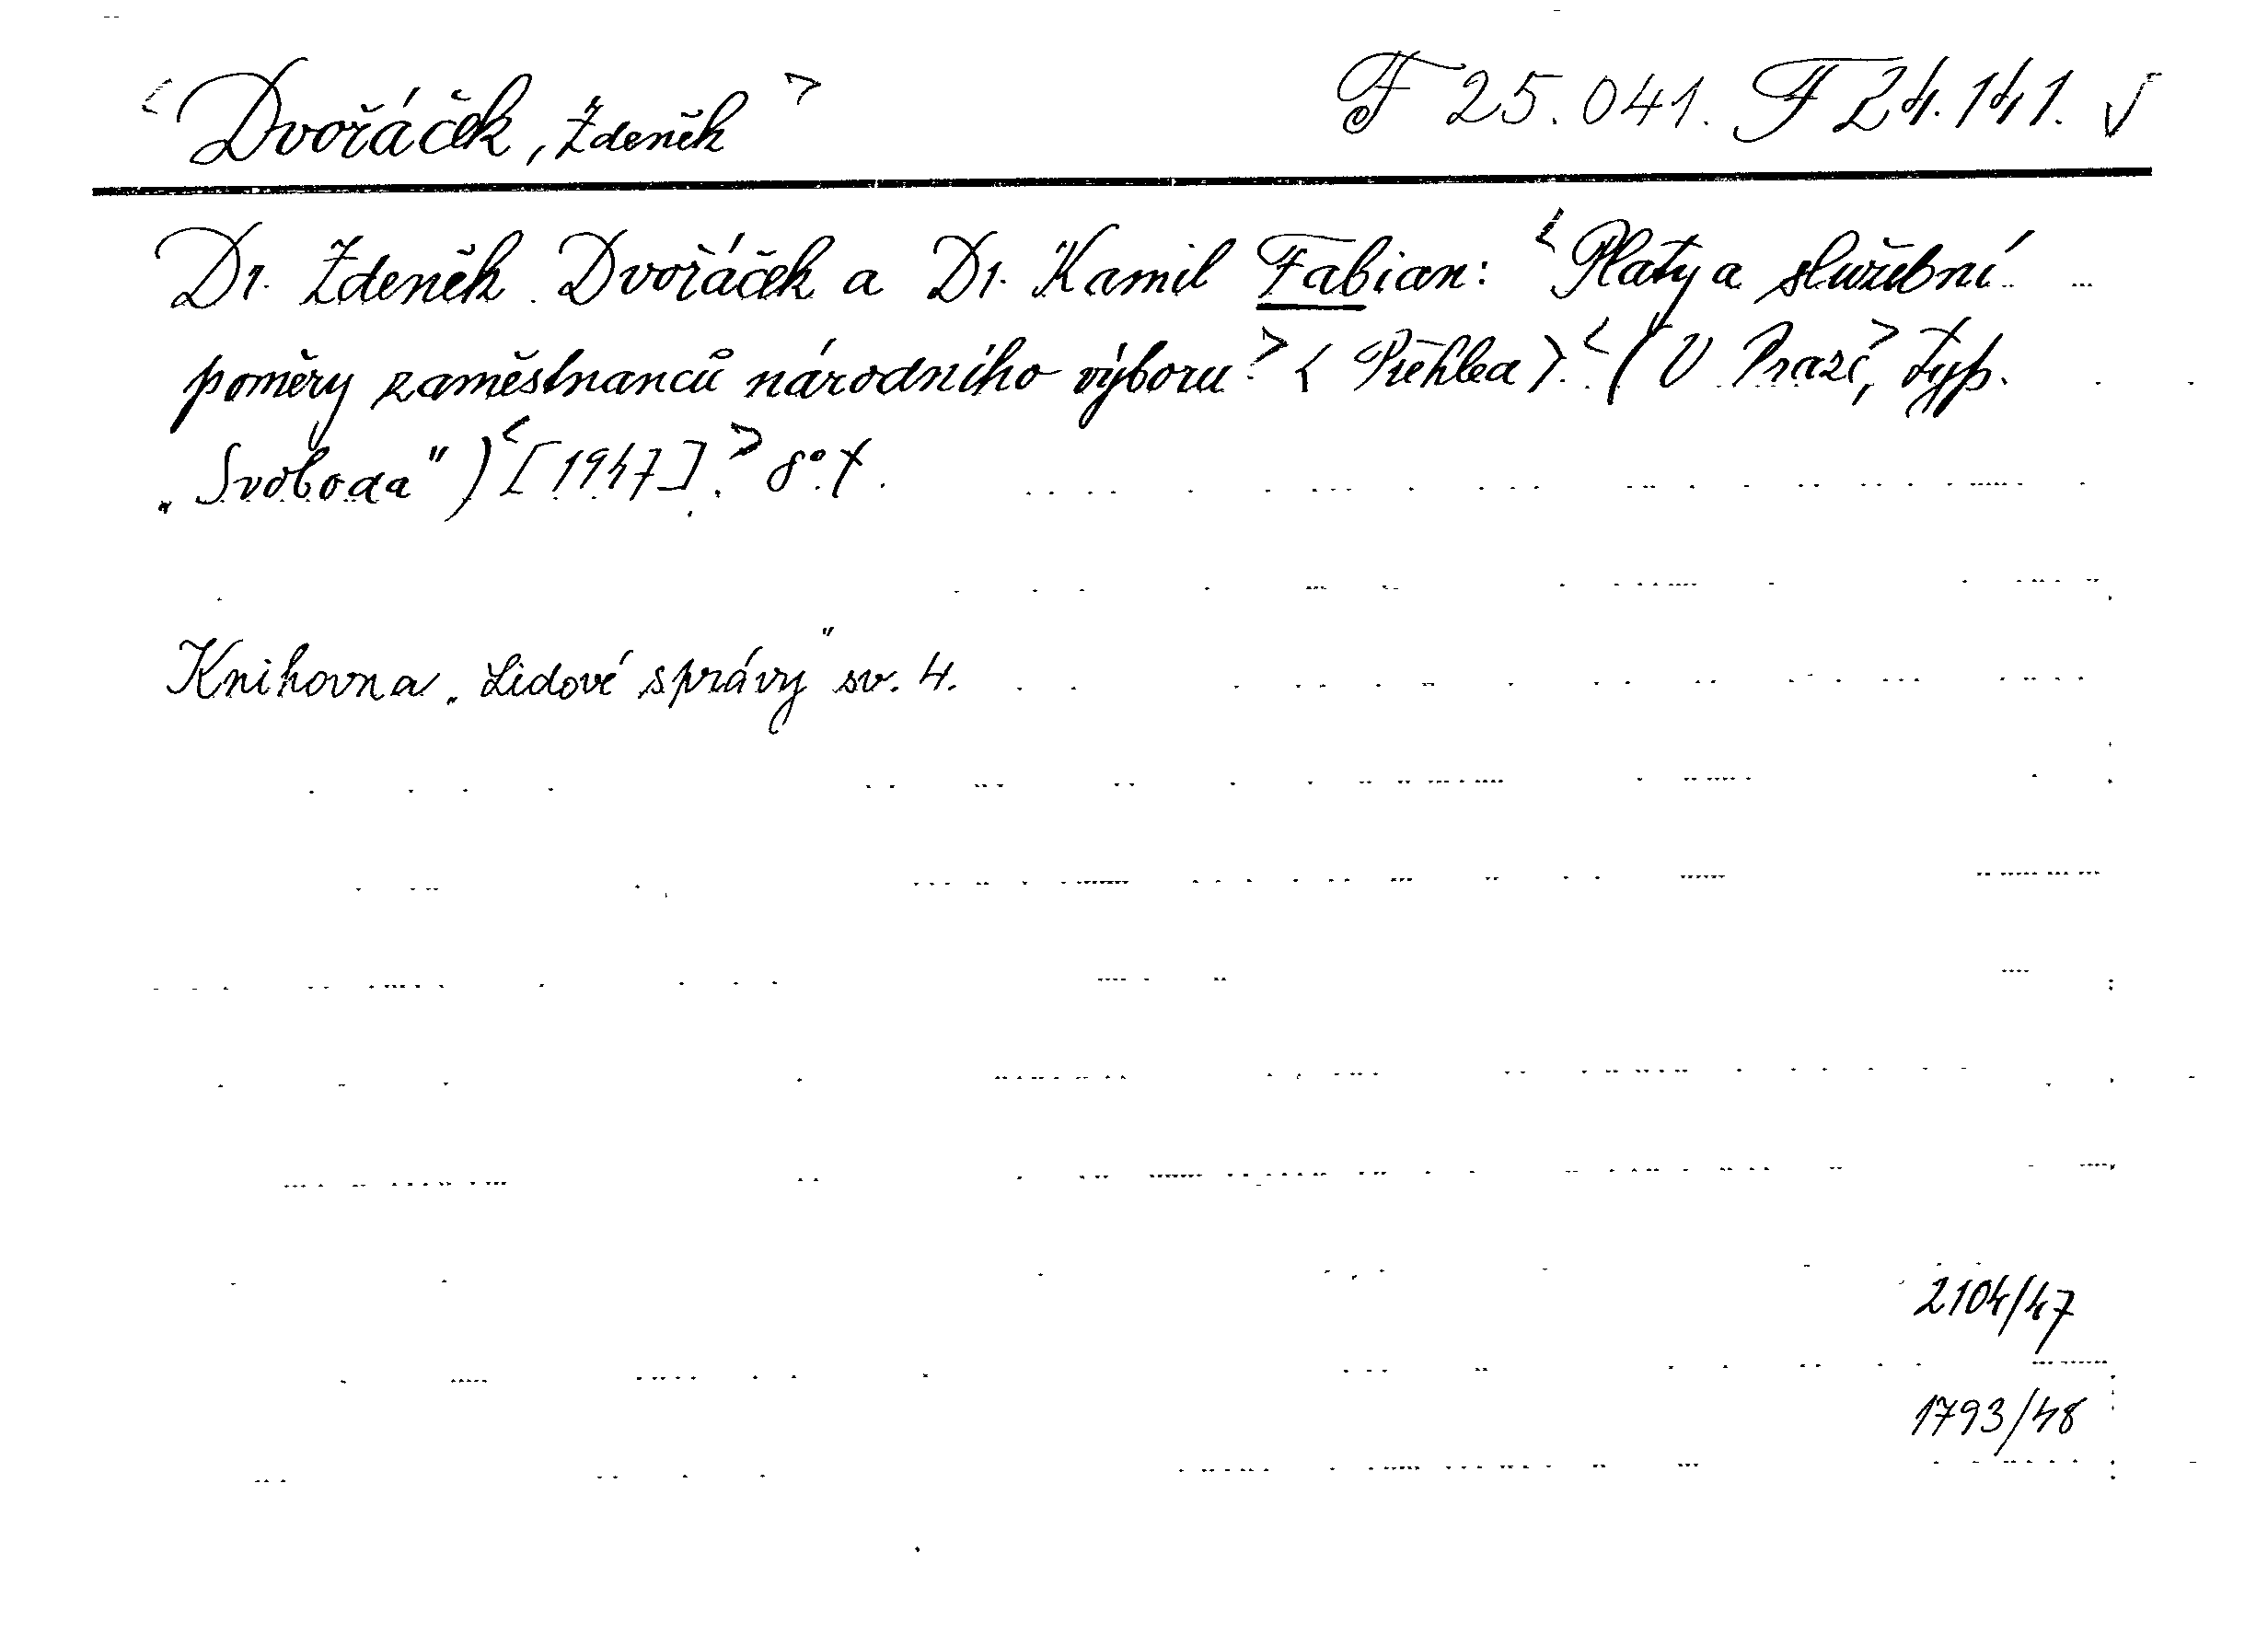 <Dvořáček, Zdeněk> F 25.041. F 24.141. √
Dr. Zdeněk Dvořáček a Dr. Kamil Fabian: <Platy a služební
poměry zaměstnanců národního výboru> <Přehled>. <(V Praze>, typ.
„Svoboda") <[1947].> 8°.
Knihovna „Lidové správy" sv. 4.
2104/47
1793/48